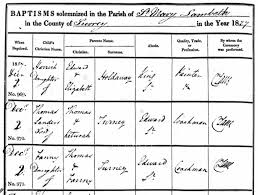 BAPTISMS solemnized in the Parish of St Mary Lambeth
in the County of Surrey in the Year 1827
When Baptized.
Child's Christian Name.
Parents Name.
Christian.
Surname.
Abode.
Quality, Trade, or Profession.
By whom the Ceremony was performed.
1827.
Decr 2
Daughter of
Edward & Elizabeth
Holloway
King St
Painter
No. 969.
Decr 2
Thomas
Son of
Thomas & Keturah
Turney
Edward St
Coachman
No. 970.
Decr 2
Fanny
Daughter of
Thomas &
Turney
Edward St
Coachman